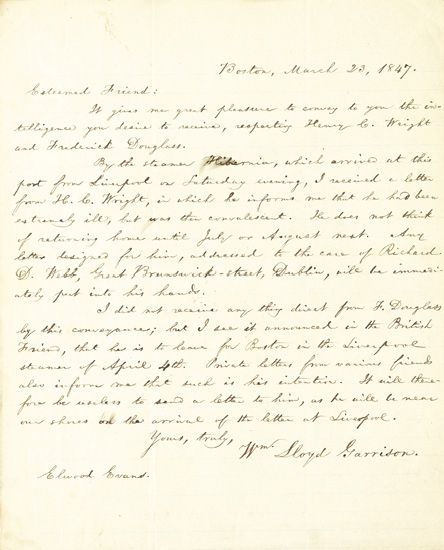 Boston, March 23, 1847.
Esteemed Friend:
It gives me great pleasure to convey to you the in-
telligence you desire to receive, respecting Henry C. Wright
and Frederick Douglass.
By the steamer Hibernia, which arrived at this
port from Liverpool on Saturday evening, I received a letter
from H. C. Wright, in which he informs me that he had been
extremely ill, but was then convalescent. He does not think
of returning home until July or August next. Any
letter designed for him, addressed to the care of Richard
D. Webb, Great Brunswick-street, Dublin, will be immedi-
ately put into his hands.
I did not receive any thing direct from F. Douglass
by this conveyance; but I see it announced in the British
Friend, that he is to leave for Boston in the Liverpool
steamer of April 4th. Private letters from various friends
also inform me that such is his intention. It will there-
fore be useless to send a letter to him, as he will be near
our shores on the arrival of the letter at Liverpool.
Yours, truly,
Wm. Lloyd Garrison.
Elwood Evans.